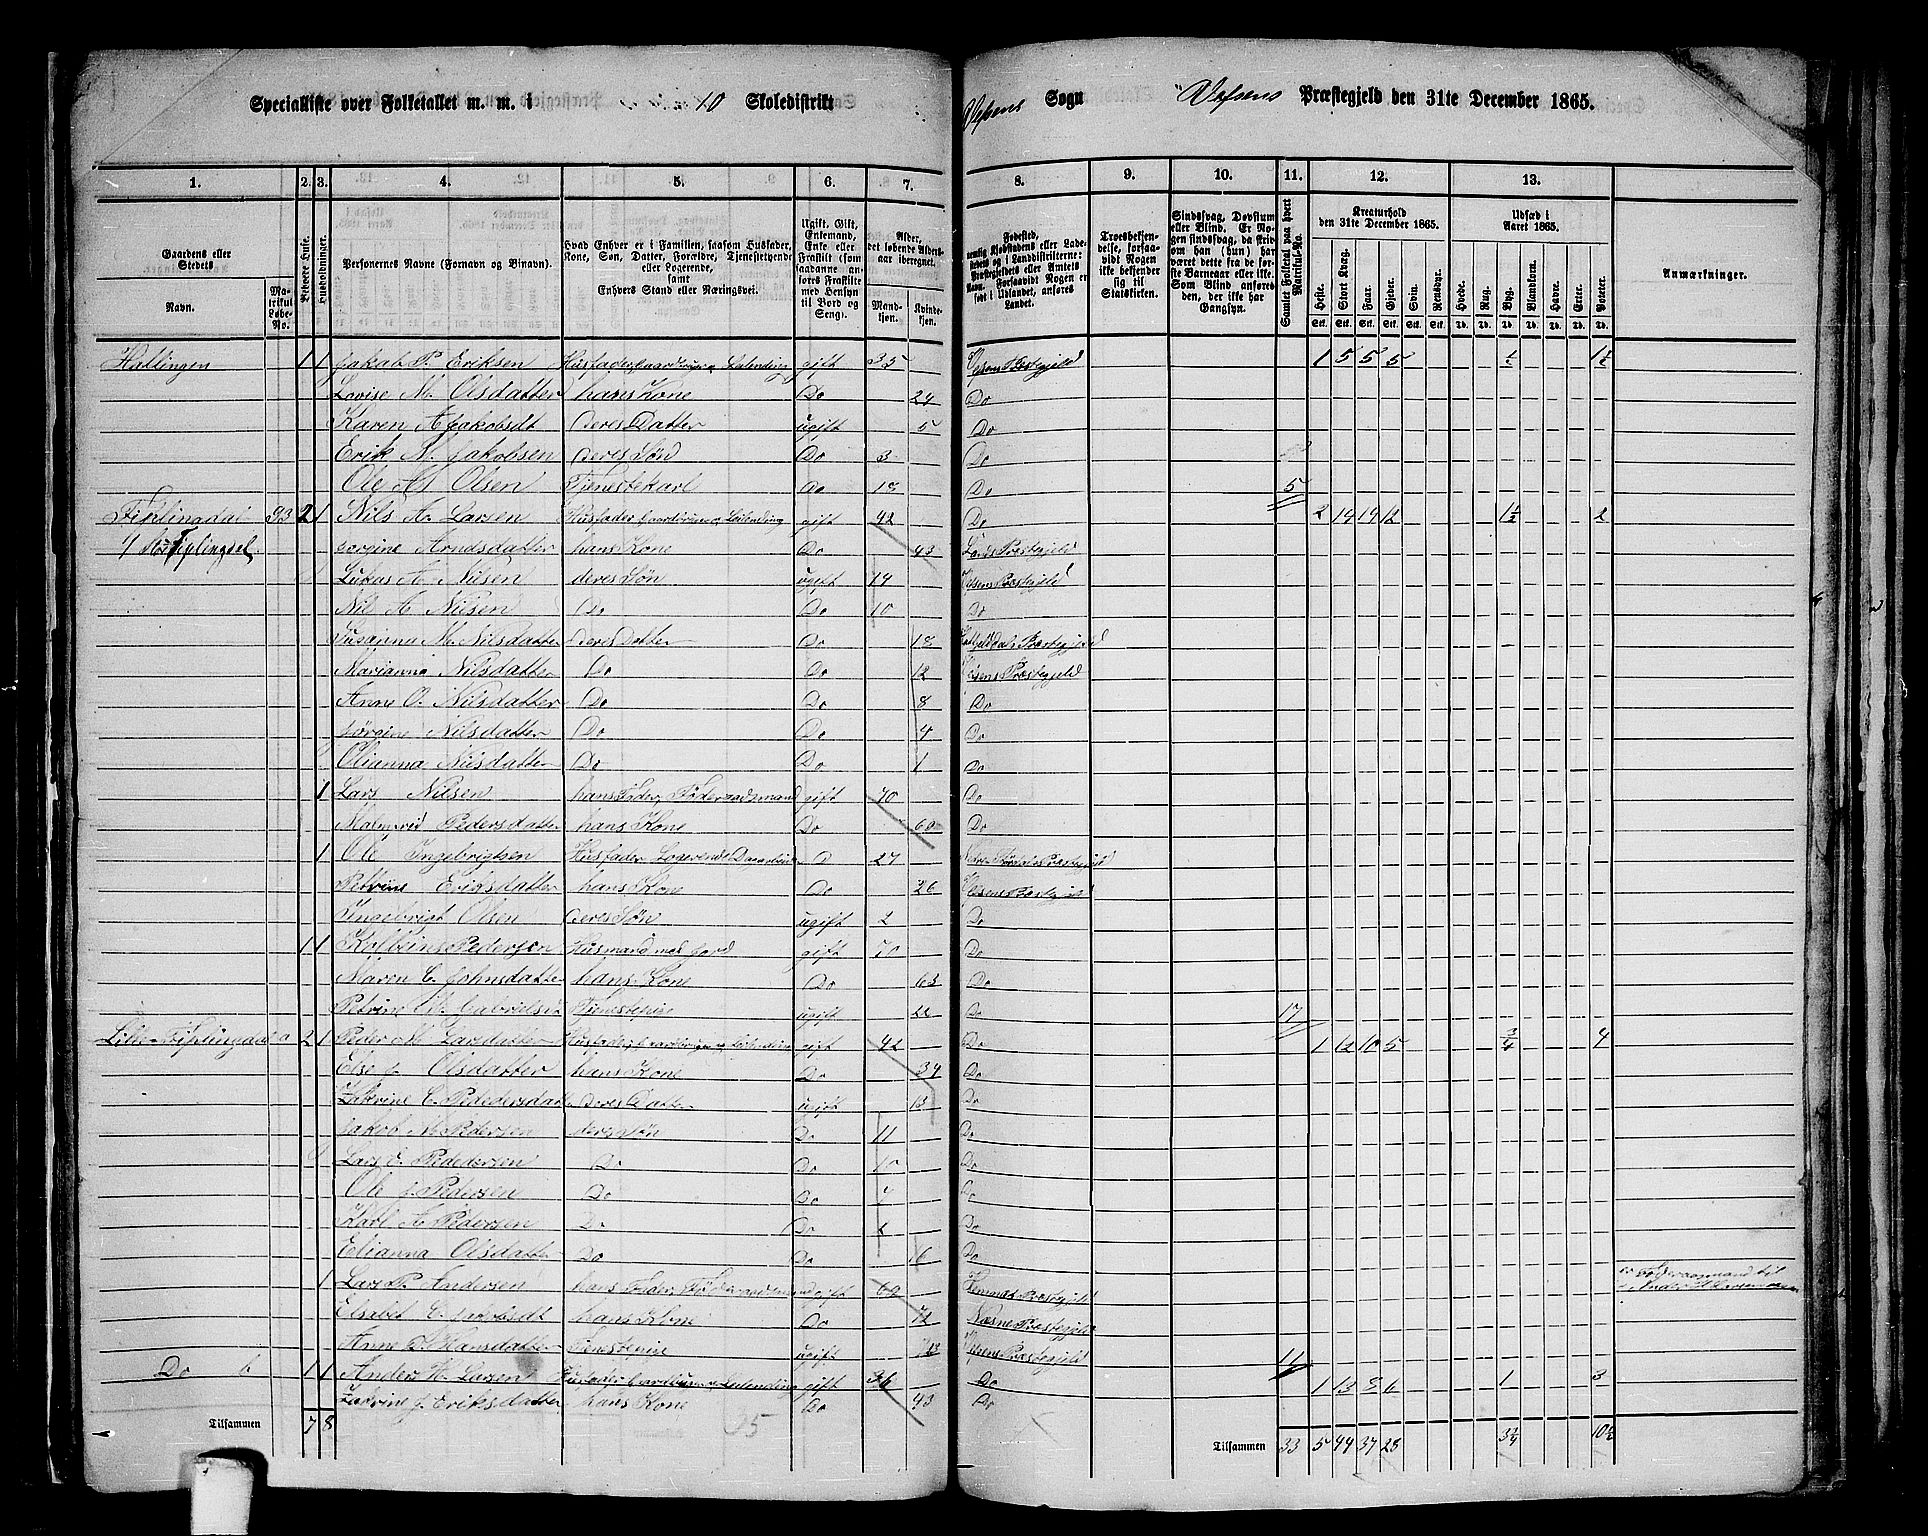 Specialliste over Folketallet m. m. i 10 Skoledistrikt Vefsens Sogn Vefsens Præstegjeld den 31te December 1865.
1. 2. 3. 4. 5. 6. 7. 8. 9. 10. 11. 12. 13.
Gaardens eller Stedets
Navn.
Matrikul Løbe-No.
Beboede Huse.
Husholdninger.
Personernes Navne (Fornavn og Binavn).
Hvad Enhver er i Familien, saasom Husfader, Kone, Søn, Datter, Forældre, Tjenestetyende eller Logerende,
samt
Enhvers Stand eller Næringsvei.
Ugift, Gift, Enkemand, Enke eller Fraskilt (som saadanne anføres Fraskilte med Hensyn til Bord og Seng).
Alder, det løbende Aldersaar iberegnet.
Mandkjøn. Kvindekjøn.
Fødested,
Troesbekjendelse, forsaavidt Nogen ikke bekjender sig til Statskirken.
Sindssvag, Døvstum eller Blind.
Samlet Folketal paa hvert Matrikul-No.
Kreaturhold den 31te December 1865.
Heste. Stort Kvæg. Faar. Gjeder. Svin. Rensdyr.
Udsæd i Aaret 1865.
Hvede. Rug. Byg. Blandkorn. Havre. Erter. Poteter.
Anmærkninger.
Hattingen 1 1 Jakob P. Eriksen Husfader, Gaardbruger, Leilending gift 35 Vefsens Præstegjeld 1 5 5 5 ½ 1½
Lovise M. Olsdatter hans Kone Do 24 Do
Karen A Jakobsdt deres Datter ugift 5 Do
Erik M. Jakobsen deres Søn Do 3 Do
Ole M Olsen Tjenestekarl Do 18 Do 5
Fiplingdal 93 2 1 Nils A. Larsen Husfader, Gaardbruger, Leilending gift 42 Do 2 14 14 12 1½ 2
Arntsdatter hans Kone Do 43 Præstegjeld
Lukas A. Nilsen deres Søn ugift 14 Vefsens Præstegjeld
Nil A Nilsen Do Do 10 Do
Susanna M. Nilsdatter deres Datter Do 18 Hatfjelddals Præstegjeld
Marianna Nilsdatter Do Do 12 Vefsens Præstegjeld
Anne O. Nilsdatter Do Do 8 Do
Jørgine Nilsdatter Do Do 4 Do
Olianna Nilsdatter Do Do 1 Do
1 Lars Nilsen hans Fader, Føderaadsmand gift 70 Do
Pedersdatter hans Kone Do 60 Do
1 Ole Ingebrigtsen Husfader Logerende D 27 Præstegjeld
Petrine Eriksdatter hans Kone Do 26 Vefsens Præstegjeld
Ingebrigt Olsen deres Søn ugift 2 Do
1 1 Kolbeins Pedersen Husmand med Jord gift 70 Do
Maren C. Johnsdatter hans Kone Do 63 Do
Petrine Gabrielsdt Tjenestepige ugift 22 Do 17
Lille Fiplingdal a 2 1 Peder M Larsdatter Husfader, Gaardbruger, Leilending gift 42 Do 1 12 10 5 ¾ 4
Else J. Olsdatter hans Kone Do 34 Do
Petedersdatter deres Datter ugift 13 Do
Jakob M. Pedersen deres Søn Do 11 Do
Lars Pedersen Do Do 10 Do
Ole J. Pedersen Do Do 7 Do
Karl A Pedersen Do Do Do
Elianna Olsdatter Do Do 16 Do
1 Lars P. Andersen hans Fader, Føderaadsmand gift 69 Præstegjeld
Elsabet C. Jakobsdt hans Kone Do 72 Næsne Præstegjeld
Anne Hansdatter Tjenestepige ugift Vefsens Præstegjeld 11
Do b 1 1 Anders H. Larsen Husfader, Gaardbruger, Leilending gift 36 Do 1 13 8 6 1 3
J. Eriksdatter hans Kone Do 43 Do
Tilsammen 7 8 35 Tilsammen 33 5 44 37 28 3¾ 10½